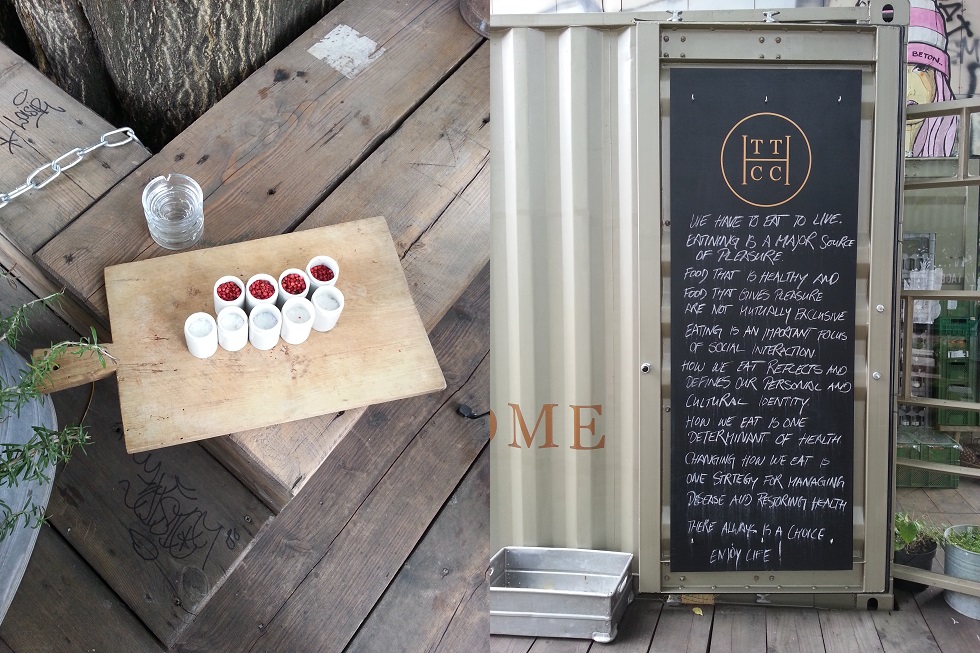 BETON.
TT
H
CC
WE HAVE TO EAT TO LIVE.
EATINING IS A MAJOR SOURCE
OF PLEASURE
FOOD THAT IS HEALTHY AND
FOOD THAT GIVES PLEASURE
ARE NOT MUTUALLY EXCLUSIVE
EATING IS AN IMPORTANT FOCUS
OF SOCIAL INTERACTION
HOW WE EAT REFLECTS AND
DEFINES OUR PERSONAL AND
CULTURAL IDENTITY
HOW WE EAT IS ONE
DETERMINANT OF HEALTH
CHANGING HOW WE EAT IS
ONE STRTEGY FOR MANAGING
DISEASE AND RESTORING HEALTH
THERE ALWAYS IS A CHOICE.
ENJOY LIFE!
OME